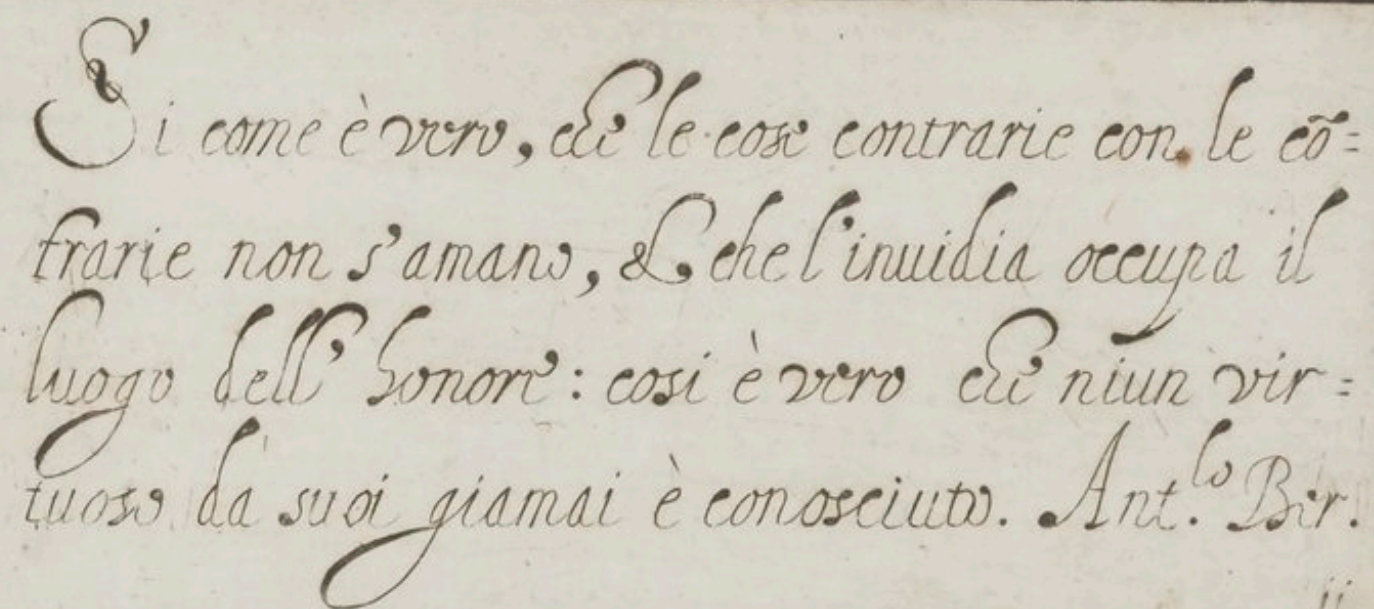 Si come è vero, che le cose contrarie con le cõ=
trarie non s'amano, & che l'inuidia occupa il
luogo dell' honore: cosi è vero che niun vir=
tuoso dà suoi giamai è conosciuto. Ant.lo Ber.